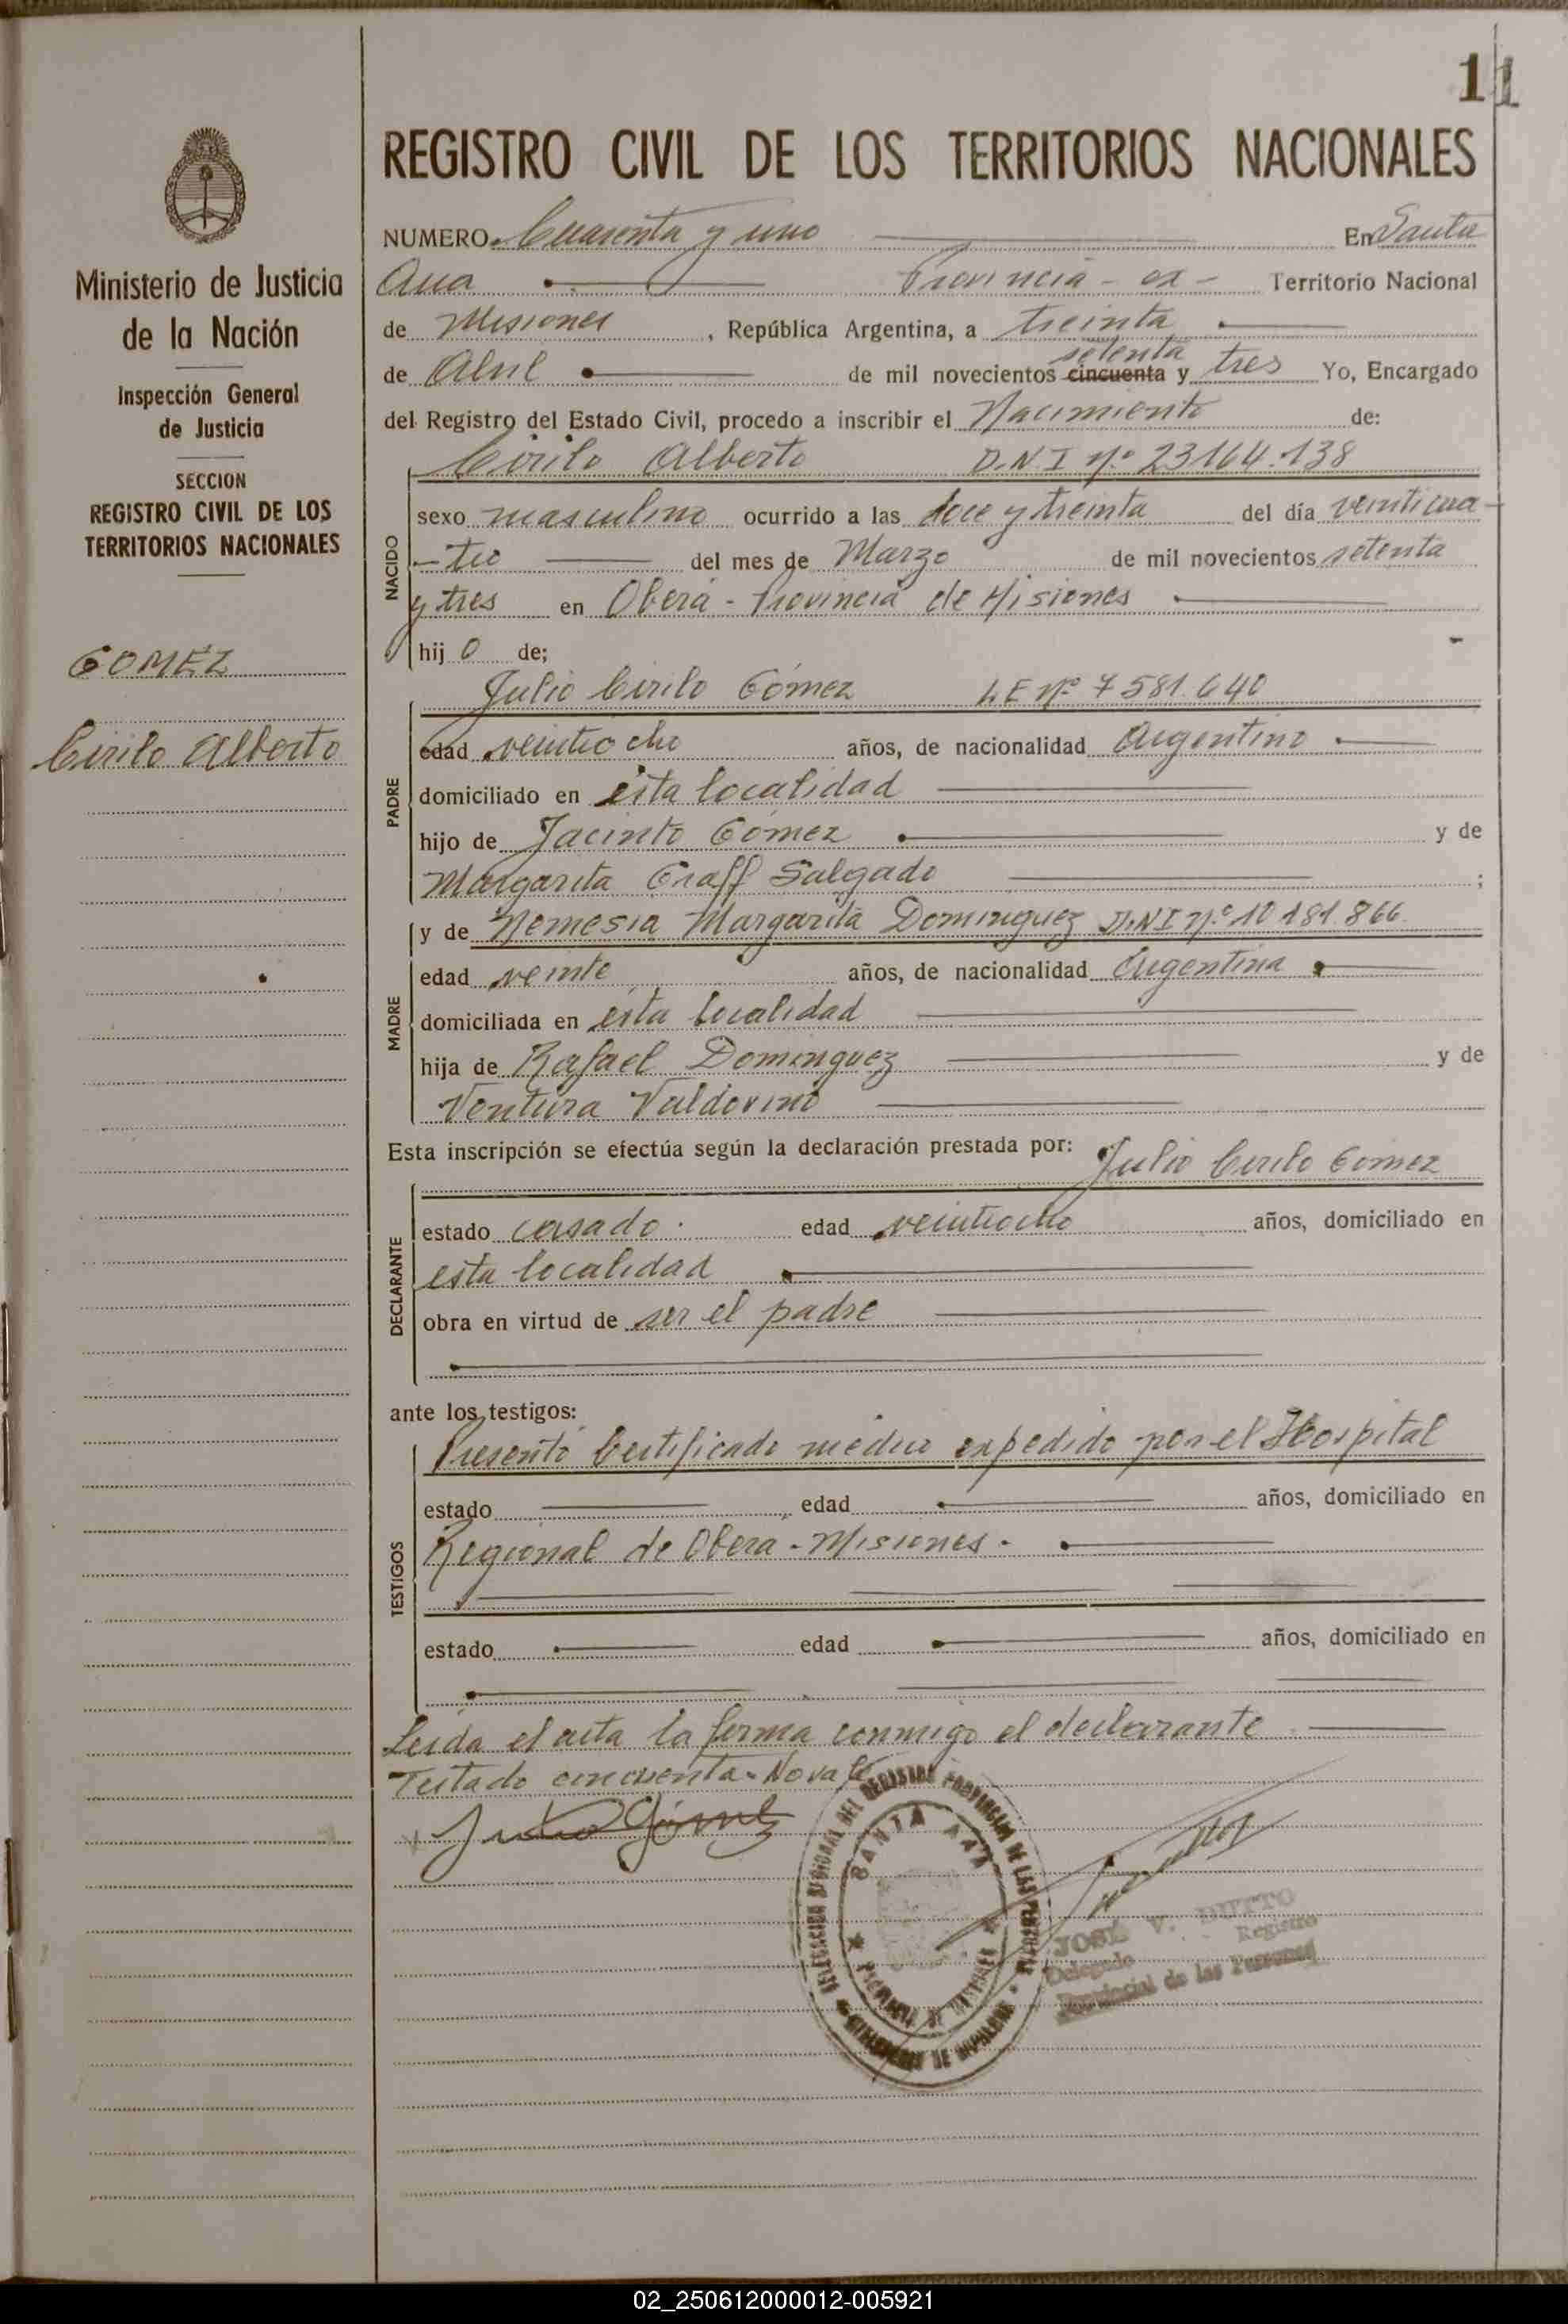 11
REGISTRO CIVIL DE LOS TERRITORIOS NACIONALES
Ministerio de Justicia
de la Nación
Inspección General
de Justicia
SECCION
REGISTRO CIVIL DE LOS
TERRITORIOS NACIONALES
GOMEZ
Cirilo Alberto
NUMERO Cuarenta y uno En Santa
Ana Provincia - ex - Territorio Nacional
de Misiones, República Argentina, a treinta
setenta
de Abril de mil novecientos cincuenta y tres Yo, Encargado
del Registro del Estado Civil, procedo a inscribir el Nacimiento de:
Cirilo Alberto D.N.I Nº 23164.138
NACIDO
sexo masculino ocurrido a las doce y treinta del día veinticua-
-tro del mes de Marzo de mil novecientos setenta
y tres en Oberá - Provincia de Misiones
hij o de;
PADRE
Julio Cirilo Gómez L E Nº 7581.640
edad veintiocho años, de nacionalidad Argentino
domiciliado en esta localidad
hijo de Jacinto Gómez y de
Margarita Graff Salgado ;
MADRE
y de Nemesia Margarita Dominguez D.N.I Nº 10 181.866
edad veinte años, de nacionalidad Argentina
domiciliada en esta localidad
hija de Rafael Dominguez y de
Ventura Valdovino
Esta inscripción se efectúa según la declaración prestada por: Julio Cirilo Gomez
DECLARANTE
estado casado. edad veintiocho años, domiciliado en
esta localidad
obra en virtud de ser el padre
ante los testigos:
TESTIGOS
Presentó Certificado médico expedido por el Hospital
estado edad años, domiciliado en
Regional de Obera - Misiones -
estado edad años, domiciliado en
Leida el acta la firma conmigo el declarante
Testado cincuenta - No vale
Julio Gómez
DELEGACION REGIONAL DEL REGISTRO PROVINCIAL DE LAS PERSONAS
SANTA ANA
PROVINCIA DE MISIONES
JOSÉ V. DUTTO
Delegado Registro
Provincial de las Personas
02_250612000012-005921